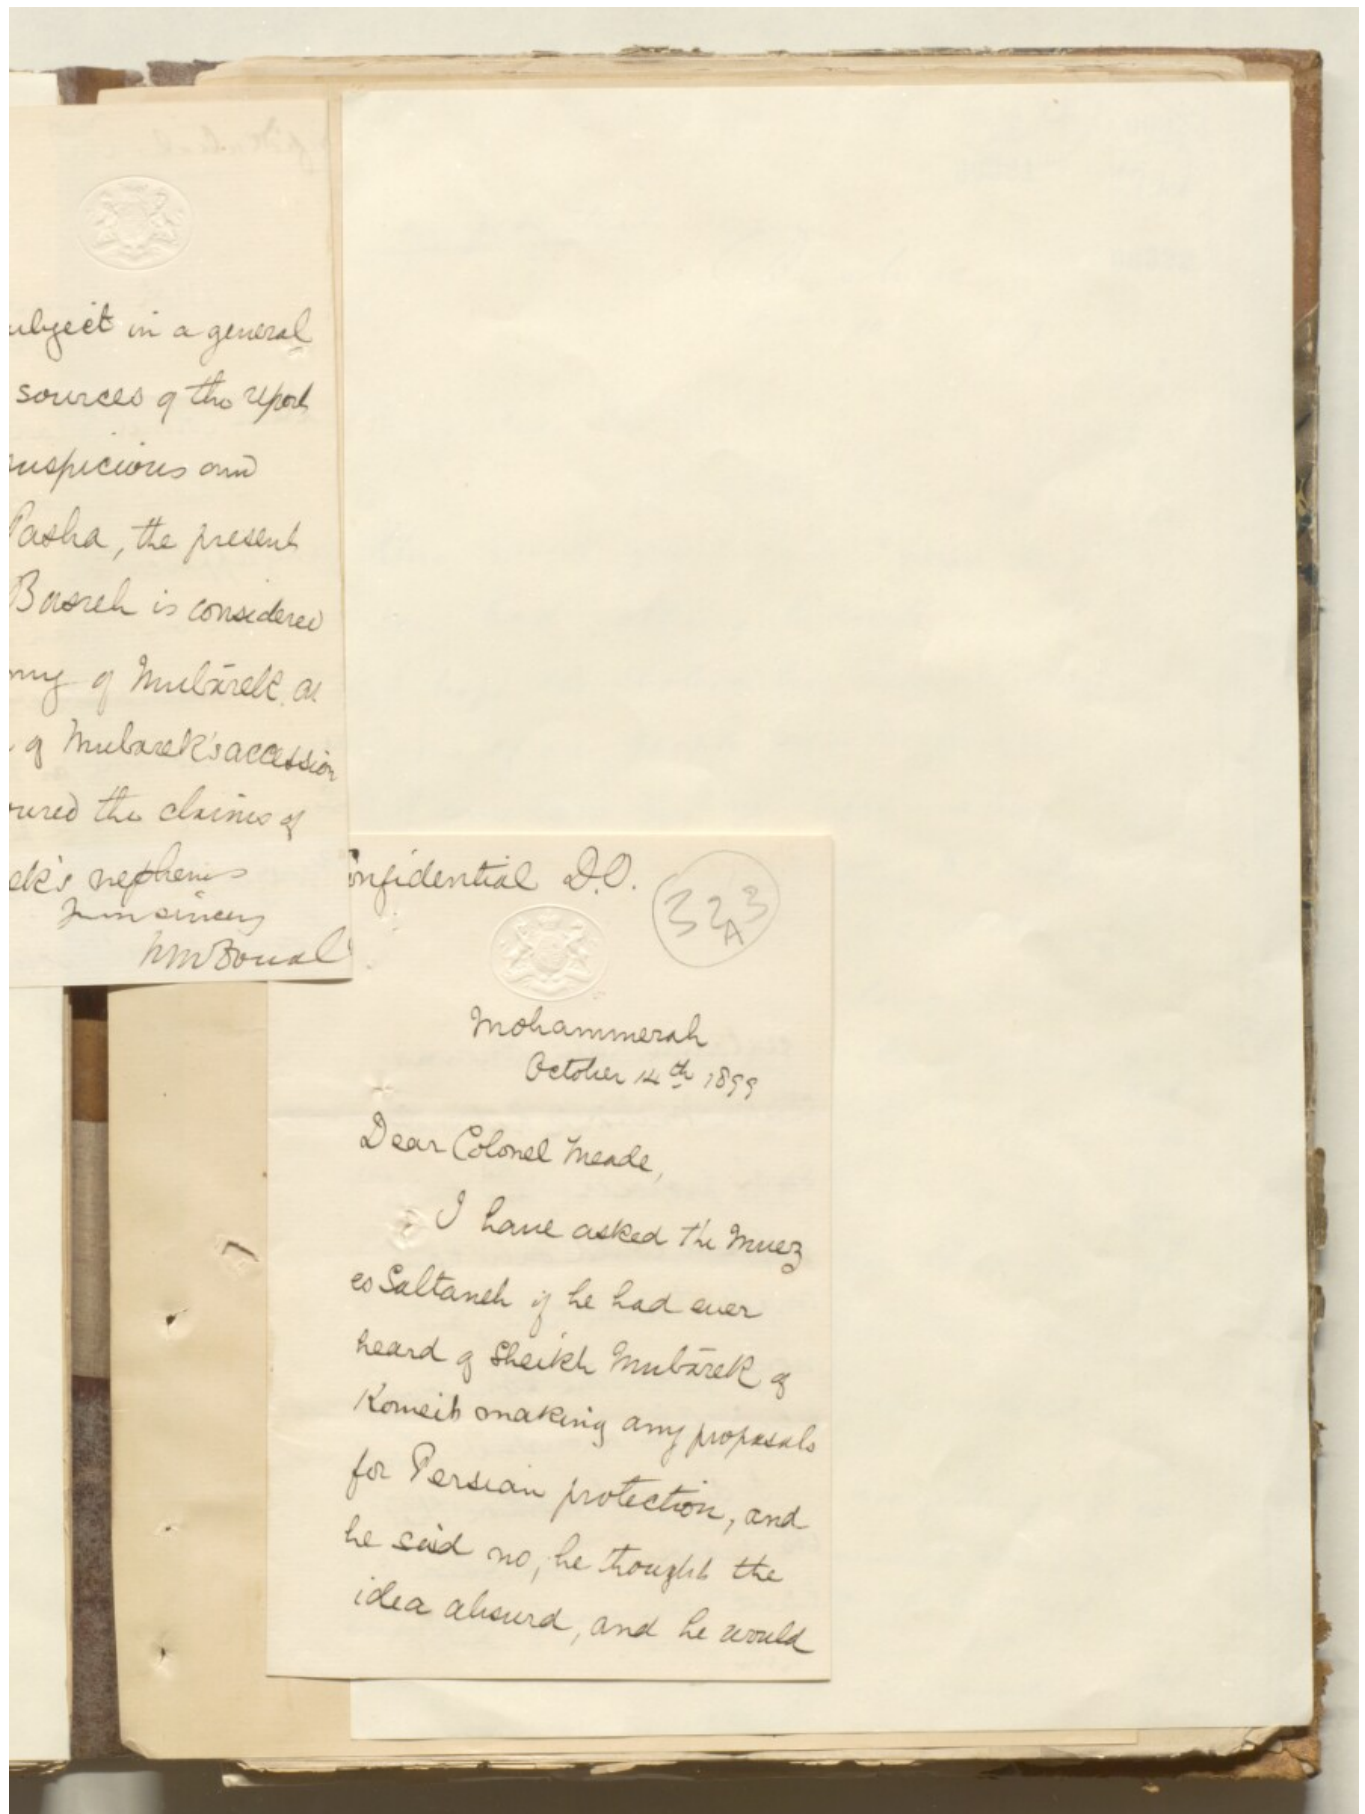 ubject in a general
sources of the report
uspicious and
Pasha, the present
Basreh is considered
my of Mubārek as
of Mubarek's accession
oured the claims of
ek's nephews
onfidential D.O.
323
A
Mohammerah
October 14th 1899
Dear Colonel Meade,
I have asked the Muez
es Saltaneh if he had ever
heard of Sheikh Mubārek of
Koweit making any proposals
for Persian protection, and
he said no, he thought the
idea absurd, and he would